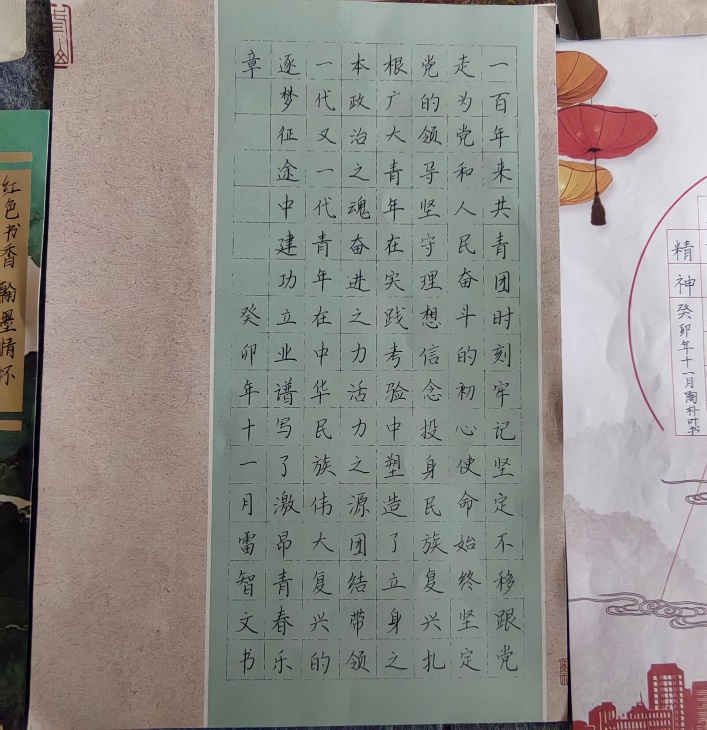 一百年来共青团时刻牢记坚定不移跟党
走为党和人民奋斗的初心使命始终坚定
党的领导坚守理想信念投身民族复兴扎
根广大青年在实践考验中塑造了立身之
本政治之魂奋进之力活力之源团结带领
一代又一代青年在中华民族伟大复兴的
逐梦征途中建功立业谱写了激昂青春乐
章 癸卯年十一月雷智文书
红色书香 翰墨情怀
精神 癸卯年十一月